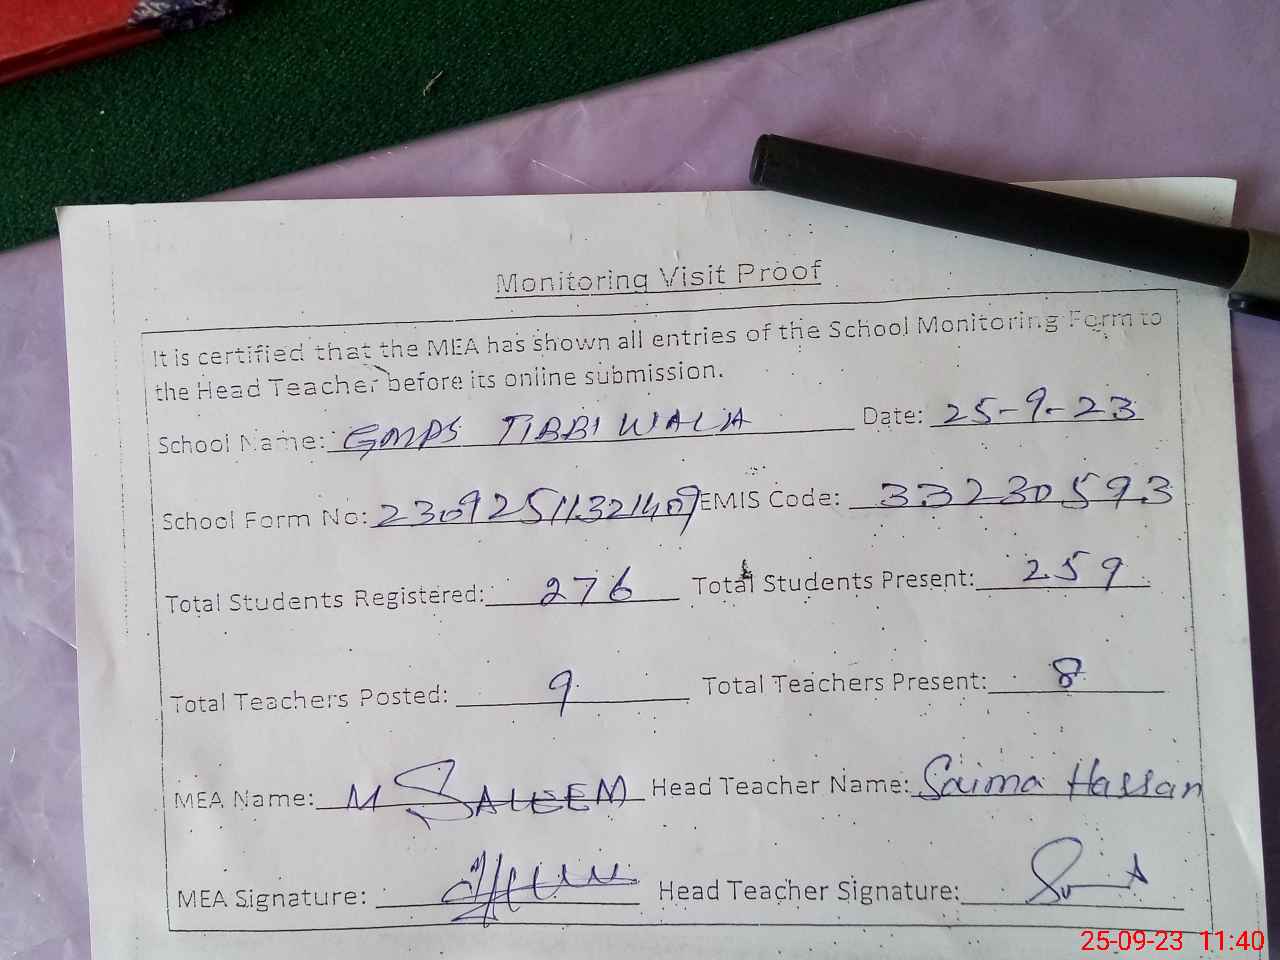 Monitoring Visit Proof
It is certified that the MEA has shown all entries of the School Monitoring Form to
the Head Teacher before its online submission.
School Name: GMPS TIBBI WALIA Date: 25-9-23
School Form No: 230925113211409 EMIS Code: 33230593
Total Students Registered: 276 Total Students Present: 259
Total Teachers Posted: 9 Total Teachers Present: 8
MEA Name: M SALEEM Head Teacher Name: Saima Hassan
MEA Signature: Head Teacher Signature:
25-09-23 11:40